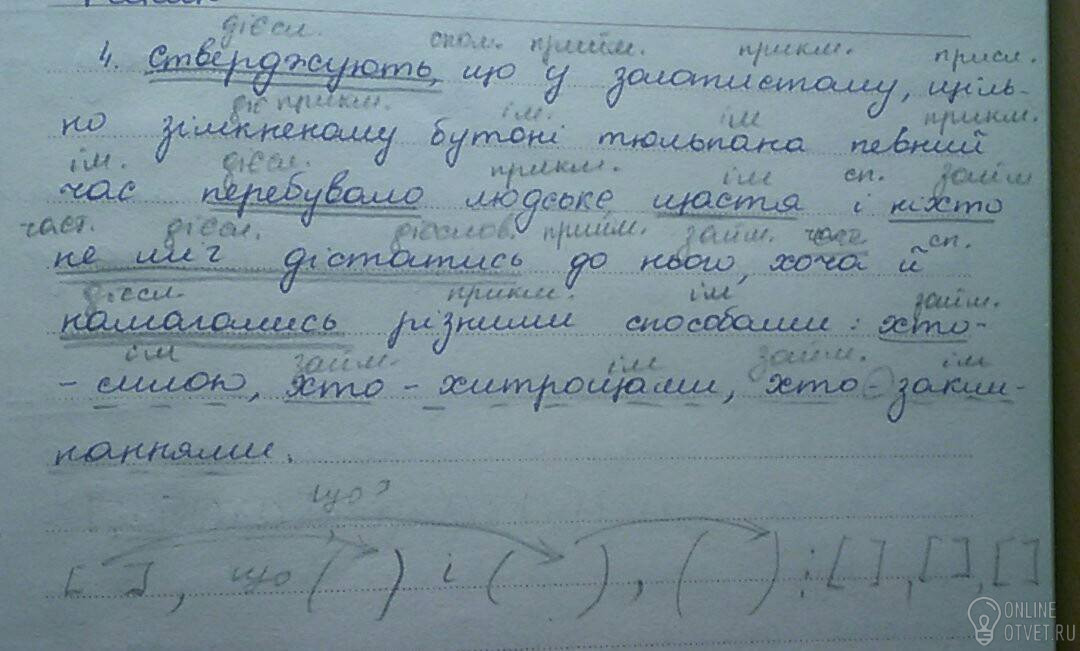 дієсл. спол. прийм. прикм. присл.
4. стверджують, що у золотистому, щіль-
діє прикм. ім. ім прикм.
но зімкненому бутоні тюльпана певний
ім. дієсл. прикм. ім сп. займ
час перебувало людське щастя і ніхто
част. дієсл. дієслов. прийм. займ. част. сп.
не міг дістатись до нього, хоча й
дієсл. прикм. ім займ.
намагались різними способами: хто-
ім займ. ім займ. ім
- силою, хто - хитрощами, хто - закли-
наннями.
що?
[ ], що ( ) і ( ), ( ) : [ ], [ ], [ ]
ONLINE
OTVET.RU